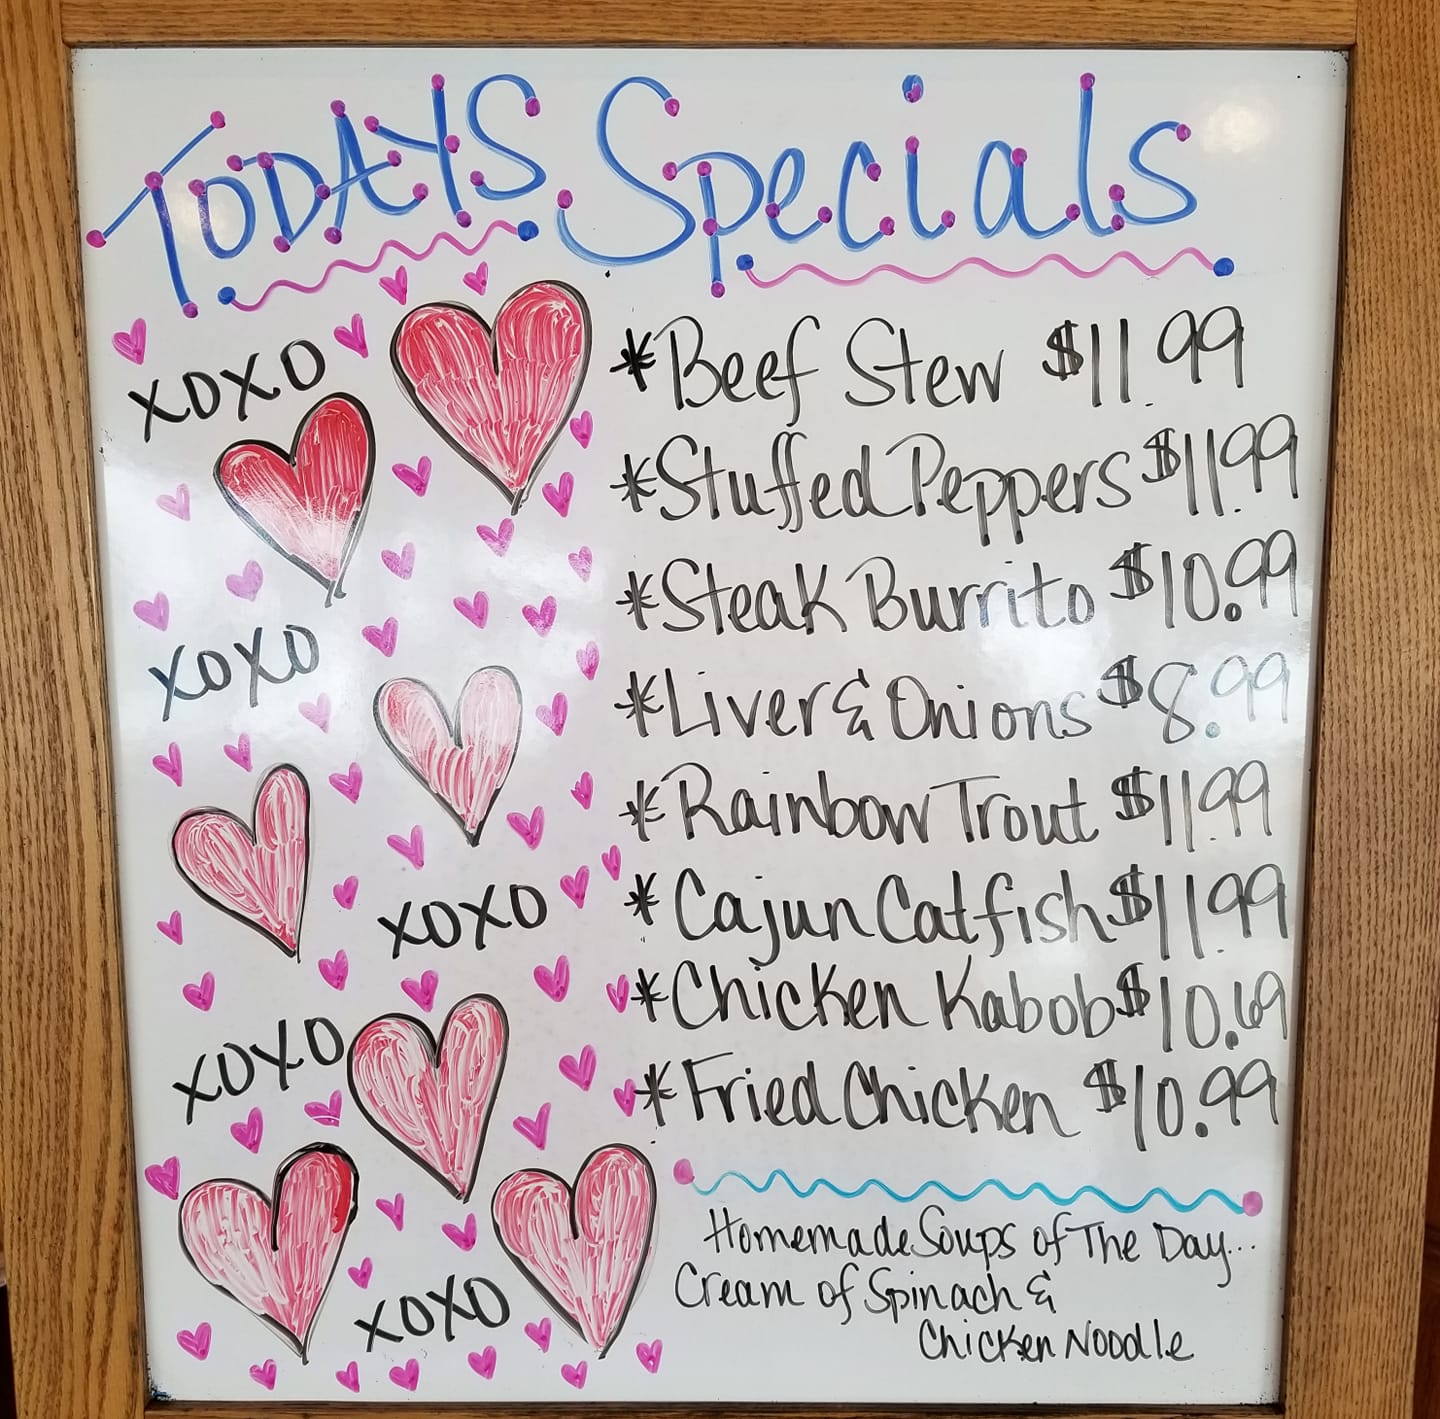 TODAYS Specials
XOXO
*Beef Stew $11.99
*Stuffed Peppers $11.99
*Steak Burrito $10.99
XOXO
*Liver & Onions $8.99
*Rainbow Trout $11.99
XOXO
*Cajun Catfish $11.99
*Chicken Kabob $10.69
XOXO
*Fried Chicken $10.99
Homemade Soups of The Day...
Cream of Spinach &
Chicken Noodle
XOXO